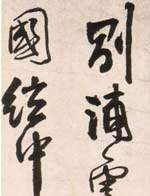 別浦雲
國結中